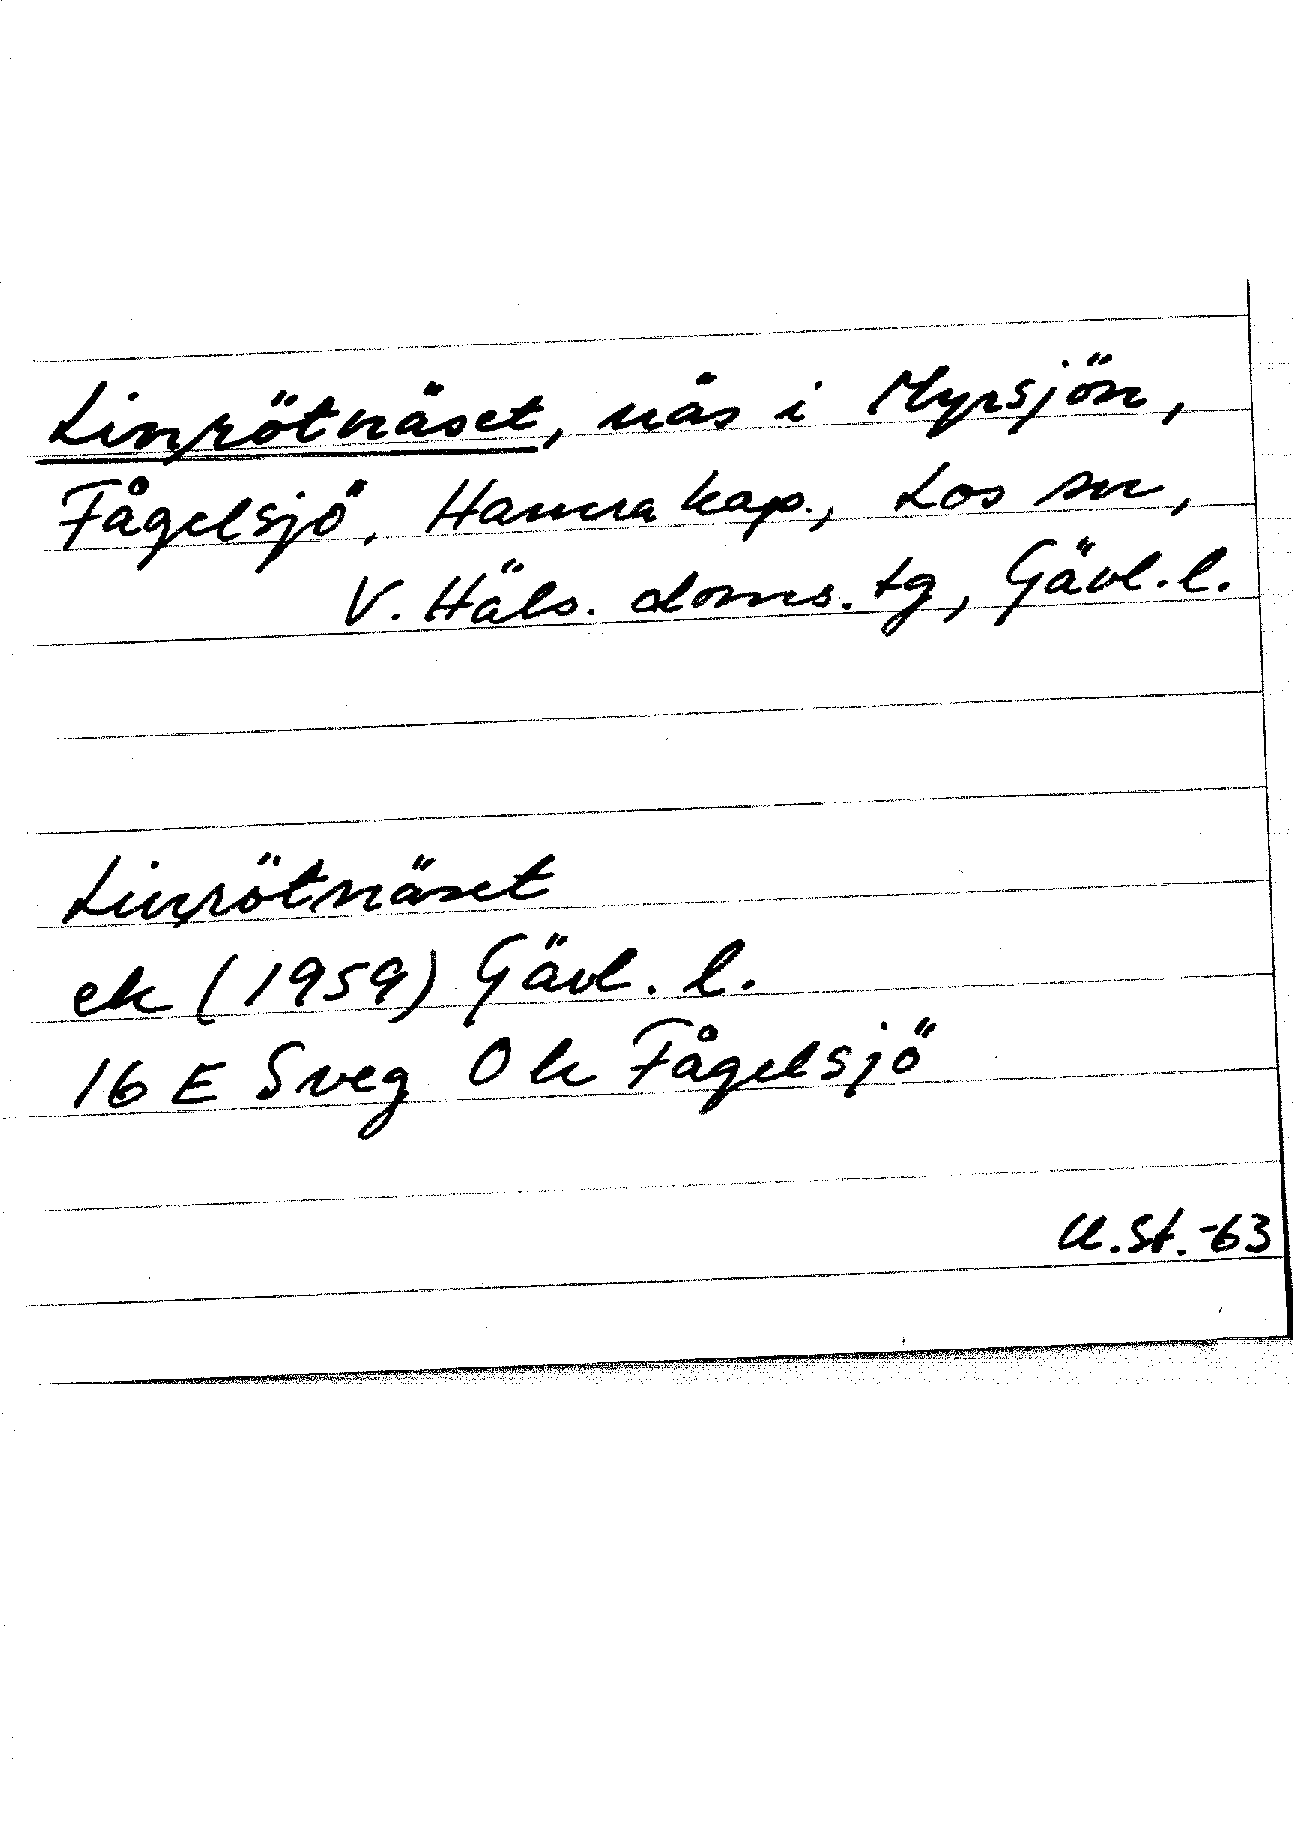 Linrötnäset, näs i Myrsjön,
Fågelsjö, Hamra kap., Los sn,
V. Häls. doms. tg, Gävl. l.
Linrötnäset
ek (1959) Gävl. l.
16 E Sveg Ok Fågelsjö
U.St.-63